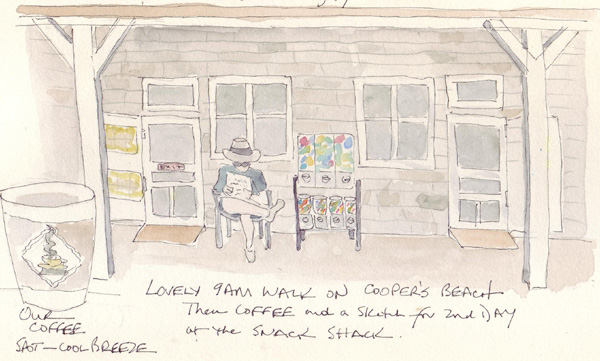 EXIT
LOVELY 9AM WALK ON COOPER'S BEACH
Then COFFEE and a SKetch for 2nd DAY
at the SNACK SHACK.
OUR
COFFEE
SPOT - COOL BREEZE